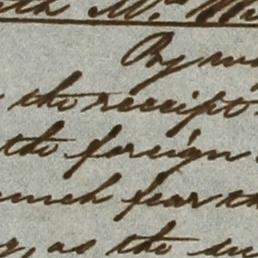 Mr.
By my
the receipt
the foreign
much fear th
as the